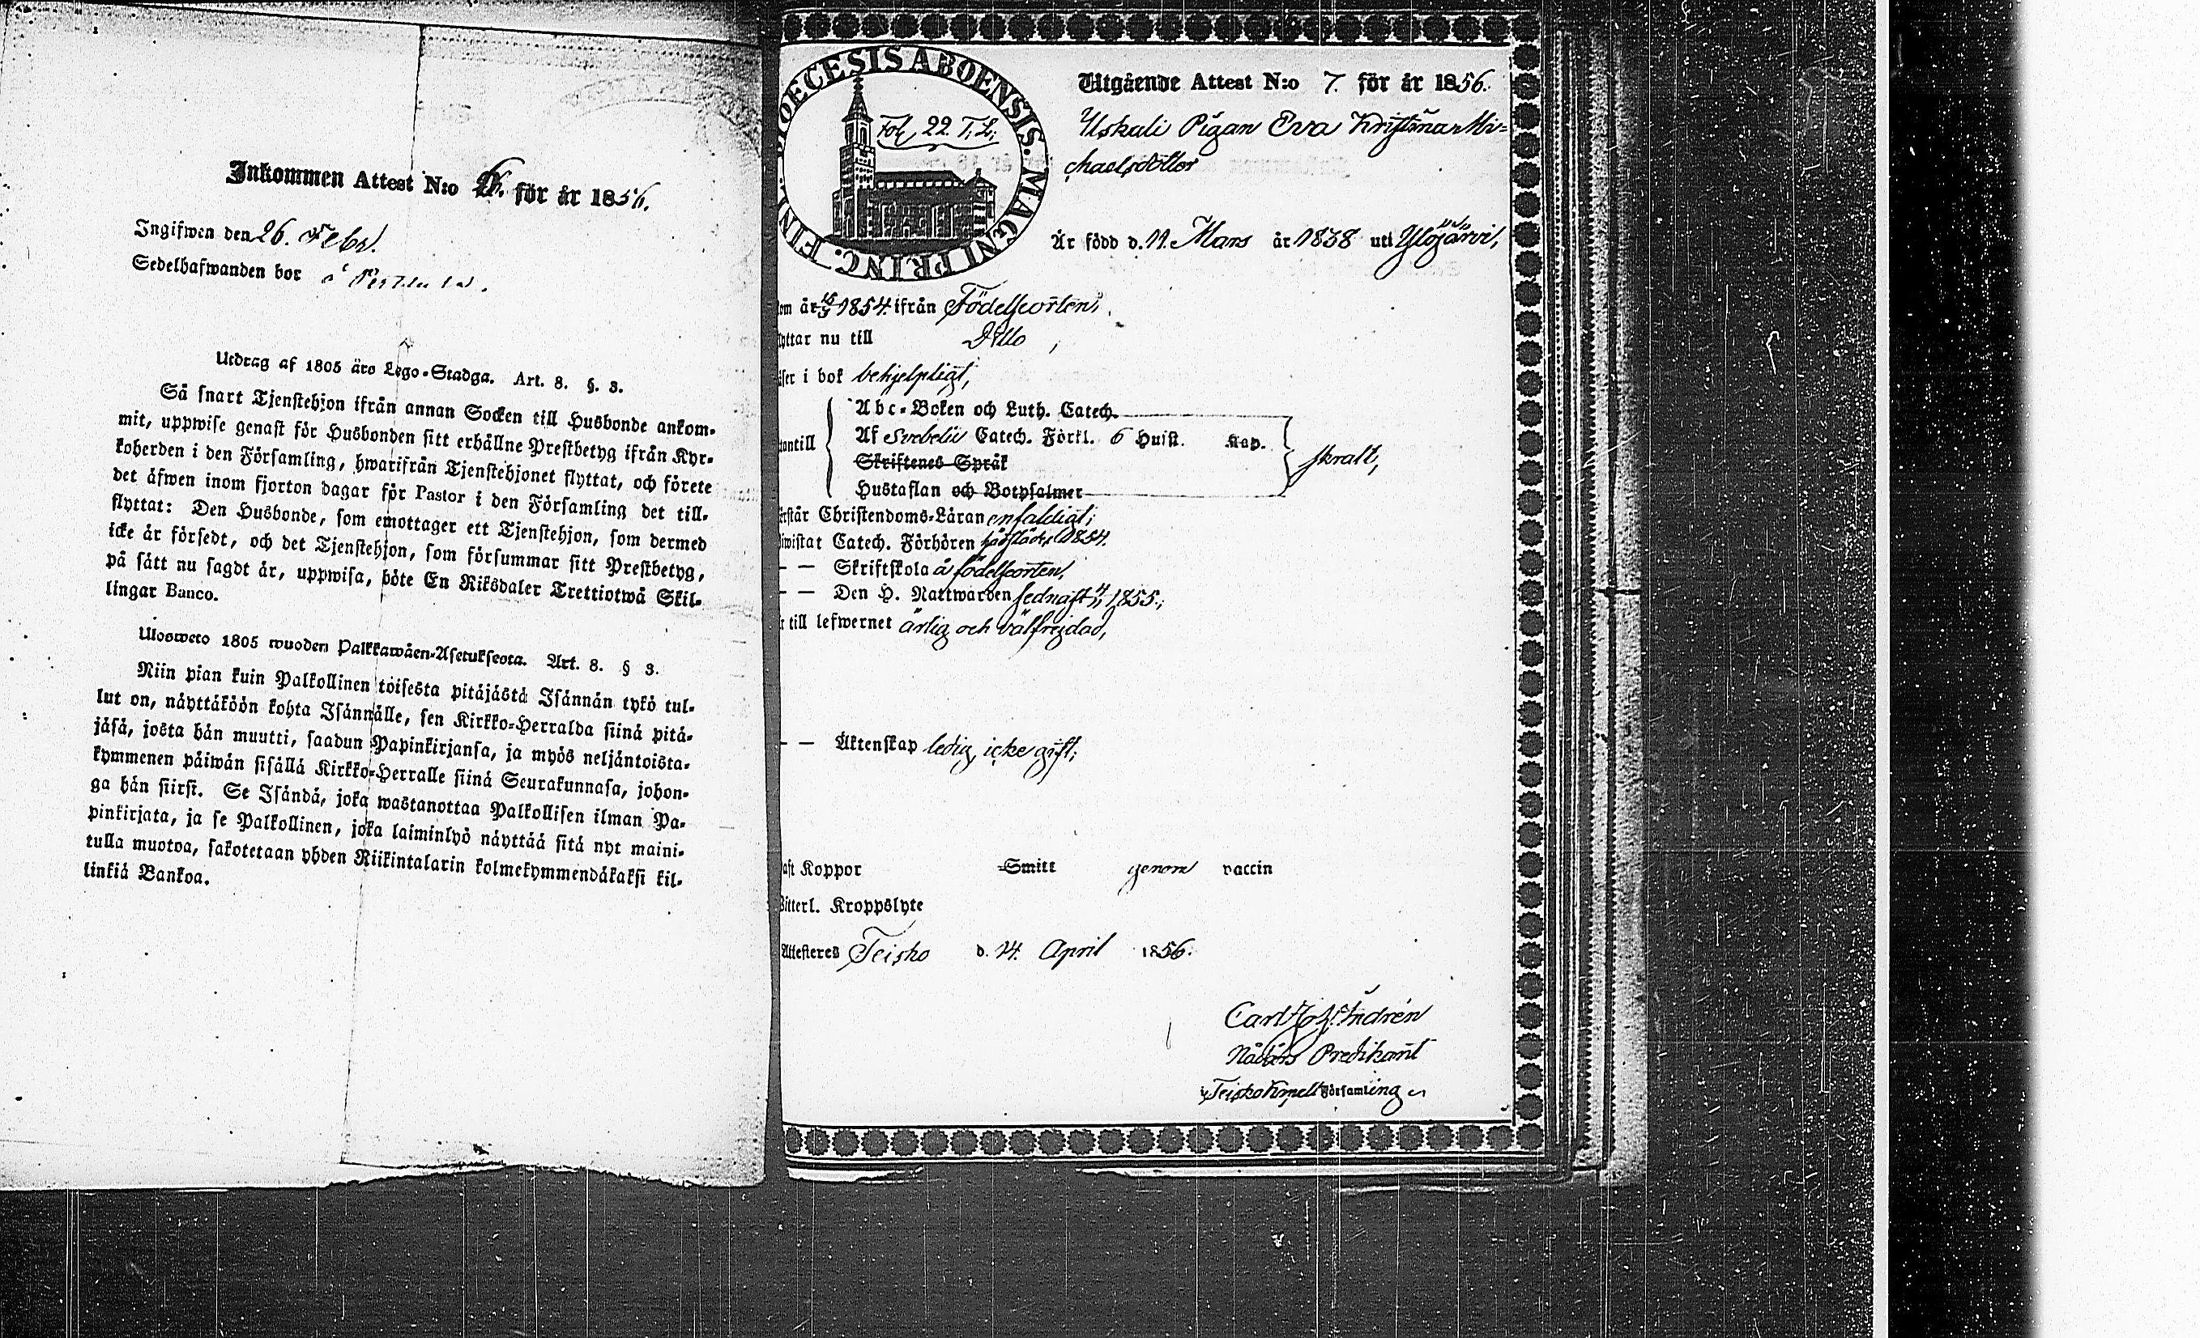 Inkommen Attest N:o för år 1856.
Ingifwen den 26. Febr.
Sedelhafwanden bor å
Utdrag af 1805 års Lego-Stadga. Art. 8. §. 3.
Så snart Tjenstehjon ifrån annan Socken till Husbonde ankom-
mit, uppwise genast för Husbonden sitt erhållne Prestbetyg ifrån Kyr-
koherden i den Församling, hwarifrån Tjenstehjonet flyttat, och förete
det äfwen inom fjorton dagar för Pastor i den Församling det till-
flyttat: Den Husbonde, som emottager ett Tjenstehjon, som dermed
icke är försedt, och det Tjenstehjon, som försummar sitt Prestbetyg,
på sätt nu sagdt är, uppwisa, böte En Riksdaler Trettiotwå Skil-
lingar Banco.
Ulosweto 1805 wuoden Palkkawäen-Asetuksesta. Art. 8. § 3.
Niin pian kuin Palkollinen toisesta pitäjästä Isännän tykö tul-
lut on, näyttäköön kohta Isännälle, sen Kirkko-Herralda siinä pitä-
jäsä, josta hän muutti, saadun Papinkirjansa, ja myös neljäntoista-
kymmenen päiwän sisällä Kirkko-Herralle siinä Seurakunnasa, johon-
ga hän siirsi. Se Isändä, joka wastanottaa Palkollisen ilman Pa-
pinkirjata, ja se Palkollinen, joka laiminlyö näyttää sitä nyt maini-
tulla muotoa, sakotetaan yhden Riikintalarin kolmekymmendäkaksi kil-
linkiä Bankoa.
DIOECESIS ABOENSIS. MAGNI PRINC. FINL.
Fol. 22. T. L.
Utgående Attest N:o 7. för år 1856.
Uskali Pigan Eva Kristina Mi-
chaelsdotter
Är född d. 11. Mars år 1838 uti Ylöjärvi,
om år 1854. ifrån Födelseorten,
yttar nu till Ditto,
äser i bok behjelpligt,
Abc-Boken och Luth. Catech.
antill Af Svebelii Catech. Förkl. 6 Huft. Kap. skralt,
Skriftenes Språk
Hustaflan och Botpsalmer
rstår Christendoms-Läran enfaldigt;
wistat Catech. Förhören 1854.
— — Skriftskola å födelseorten,
— — Den H. Nattwarden sednast 1855.;
till lefwernet ärlig och välfrejdad,
— — Äktenskap ledig, icke gift;
aft Koppor Smitt genom vaccin
Witterl. Kroppslyte
Attesteres Teisko d. 14. April 1856.
Carl Andrén
Nådårs Predikant
i Teisko Kapell Församling